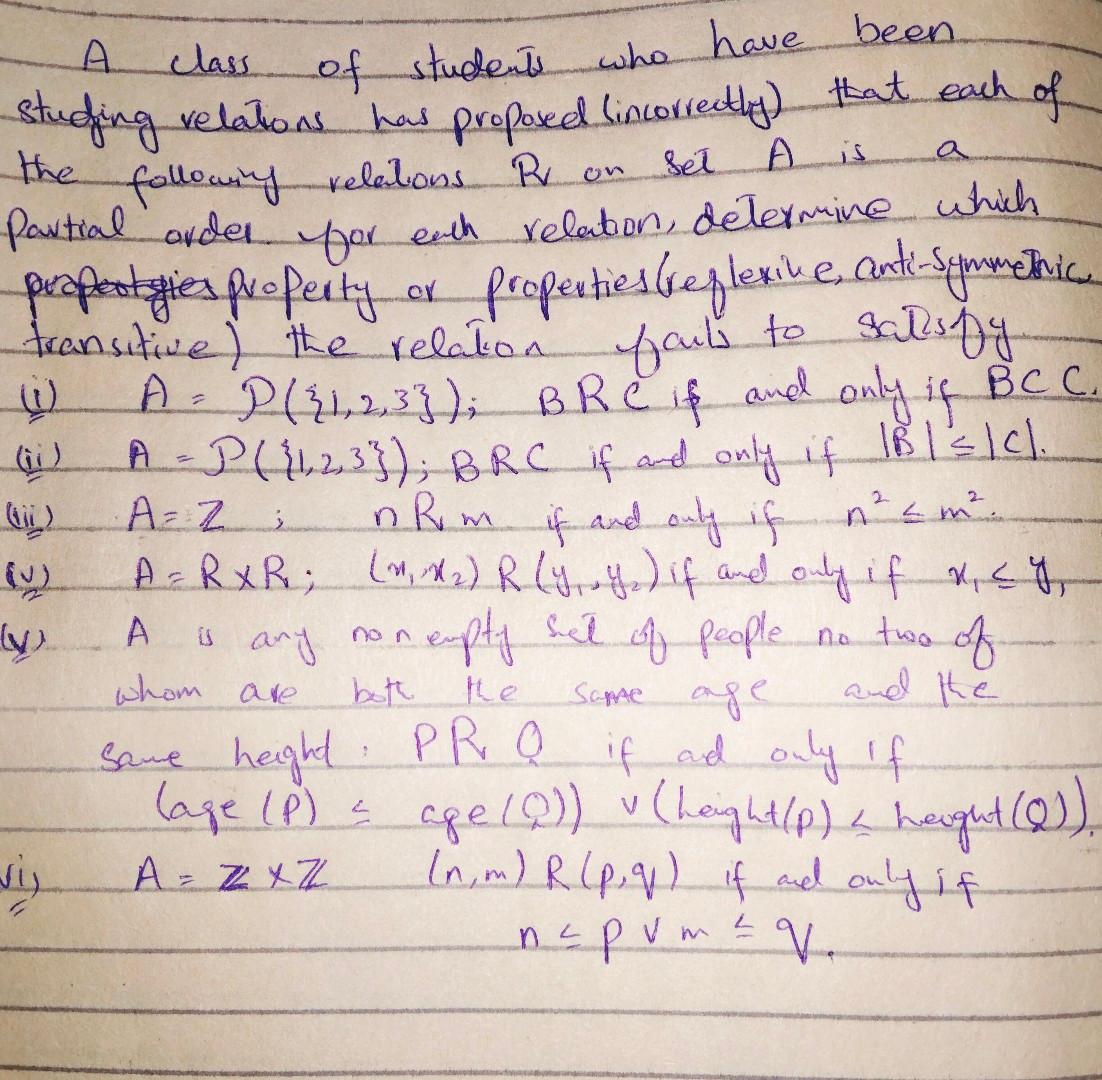 A class of students who have been
studying relations has proposed (incorrectly) that each of
the following relations R on set A is a
Partial order. for each relation, determine which
property or properties (reflexive, anti-symmetric,
transitive) the relation fails to satisfy
(i) A = P({1,2,3}); BRC if and only if B⊂C.
(ii) A = P({1,2,3}); BRC if and only if |B| ≤ |C|.
(iii) A = Z ; nRm if and only if n² ≤ m².
(iv) A = R×R; (x₁,x₂) R (y₁,y₂) if and only if x₁ ≤ y₁
(v) A is any non empty set of people no two of
whom are both the same age and the
same height: PRQ if ad only if
(age(P) ≤ age(Q)) ∨ (height(p) ≤ height(Q)).
vi) A = Z×Z (n,m) R (p,q) if ad only if
n ≤ p ∨ m ≤ q.